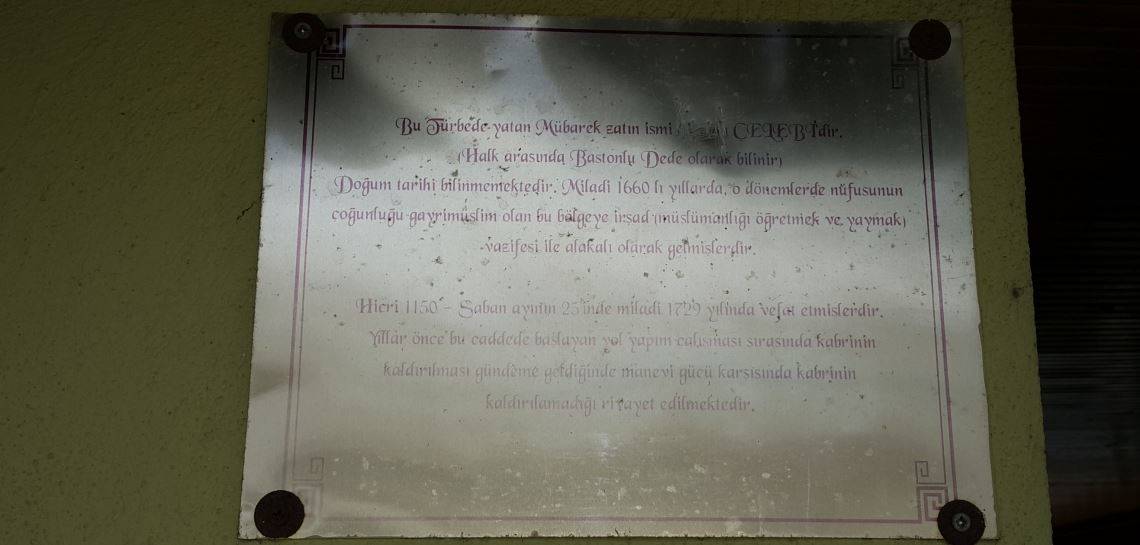 Bu Türbede yatan Mübarek zatın ismi CELEBİdir.
(Halk arasında Bastonlu Dede olarak bilinir)
Doğum tarihi bilinmemektedir. Miladi 1660 lı yıllarda, o dönemlerde nüfusunun
çoğunluğu gayrimüslim olan bu bölgeye irsad (müslümanlığı öğretmek ve yaymak)
vazifesi ile alakalı olarak gelmislerdir.
Hicri 1150 - Saban ayının 25'inde miladi 1729 yılında vefat etmislerdir.
Yıllar önce bu caddede baslayan yol yapım calısması sırasında kabrinin
kaldırılması gündeme geldiğinde manevi gücü karsısında kabrinin
kaldırılamadığı rivayet edilmektedir.